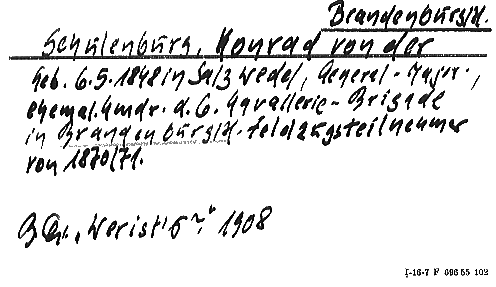 Brandenburg/H.
Schulenburg, Konrad von der
Geb. 6.5.1848 in Salzwedel, General-Major,
ehemal. Kmdr. d. 6. Kavallerie-Brigade
in Brandenburg/H. Feldzugsteilnehmer
von 1870/71.
"Wer ist's" 1908
I-16-7 F 696 55 102